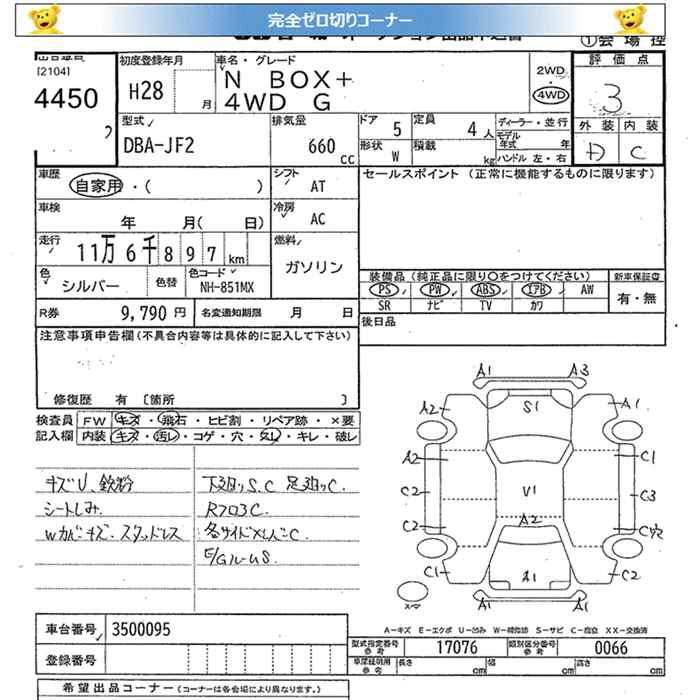 完全ゼロ切りコーナー
①会場控
[2104]
4450
初度登録年月
H28 月
車名・グレード
N BOX+
4WD G
2WD
・
4WD
評価点
3
外装 内装
D C
型式
DBA-JF2
排気量
660 CC
ドア 5
定員 4人
形状 W
積載 kg
ディーラー・並行
モデル年式 年
ハンドル 左・右
車歴
自家用・( )
シフト AT
セールスポイント (正常に機能するものに限ります)
車検
年 月( 日)
冷房 AC
走行
11万6千897km
燃料
ガソリン
色
シルバー
色替
色コード
NH-851MX
装備品(純正品に限り○をつけてください)
新車保証書
PS PW ABS エアB AW
SR ナビ TV カワ
有・無
R券 9,790円
名変通知期限 月 日
後日品
注意事項申告欄(不具合内容等は具体的に記入して下さい)
修復歴 有 〔箇所 〕
検査員記入欄
FW キズ・飛石・ヒビ割・リペア跡・×要
内装 キズ・汚レ・コゲ・穴・欠レ・キレ・破レ
キズU、鉄粉
シートしみ
Wカバーキズ・スタッドレス
下廻りS.C 足廻りC.
RフロアC.
各サイドメンバーC.
E/GルームS.
A1 A3
A2 S1 A1
A2 C1
C2 V1 C3
C2 A2 C穴
C1 A1 C2
A1 A1
スペア
A-キズ E-エクボ U-凹み W-補修跡 S-サビ C-腐食 XX-交換済
車台番号 3500095
登録番号
型式指定番号 参考 17076
類別区分番号 参考 0066
車庫証明用 参考 長さ cm 幅 cm 高さ cm
希望出品コーナー(コーナーは各会場により異なります。)